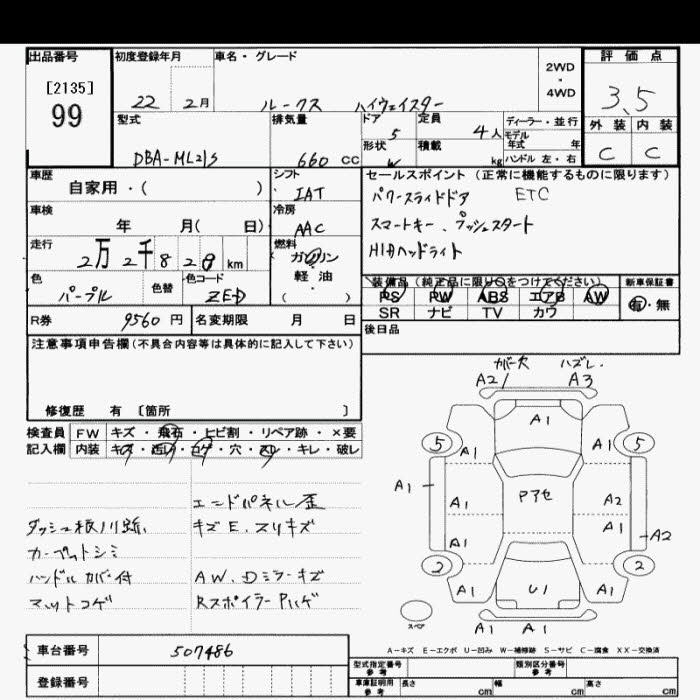 出品番号
[2135]
99
初度登録年月
22 2月
車名・グレード
ルークス ハイウェイスター
2WD
・
4WD
評価点
3.5
外装 内装
C C
型式
DBA-ML21S
排気量
660 CC
ドア 5
形状 W
定員 4人
積載 kg
ディーラー・並行
モデル
年式 年
ハンドル 左・右
車歴
自家用・( )
シフト
IAT
セールスポイント (正常に機能するものに限ります)
パワースライドドア ETC
スマートキー、プッシュスタート
HIDヘッドライト
車検
年 月( 日)
冷房
AAC
走行
2万2千820km
燃料
ガソリン
・
軽油
( )
色
パープル
色替
色コード
ZED
装備品 (純正品に限り○をつけてください)
PS PW ABS エアB AW
SR ナビ TV カワ
新車保証書
有・無
R券 9560円
名変期限 月 日
後日品
注意事項申告欄(不具合内容等は具体的に記入して下さい)
修復歴 有 [箇所 ]
検査員
記入欄
FW キズ・飛石・ヒビ割・リペア跡・×要
内装 キズ・汚レ・コゲ・穴・スレ・キレ・破レ
エンドパネル歪
キズE、スリキズ
カーペットシミ
ハンドルカバー付
AW、Dミラーキズ
マットコゲ
カバー欠 ハズレ
A2 A3
A1
5 5
A1 A1
A1
A1 Pアセ A2
A1
A1 A2
2 2
A1 U1 A1
スペア
A1 A1
A-キズ E-エクボ U-凹み W-補修跡 S-サビ C-腐食 XX-交換済
車台番号 507486
登録番号
型式指定番号
参考
類別区分番号
参考
車庫証明用
参考
長さ cm 幅 cm 高さ cm